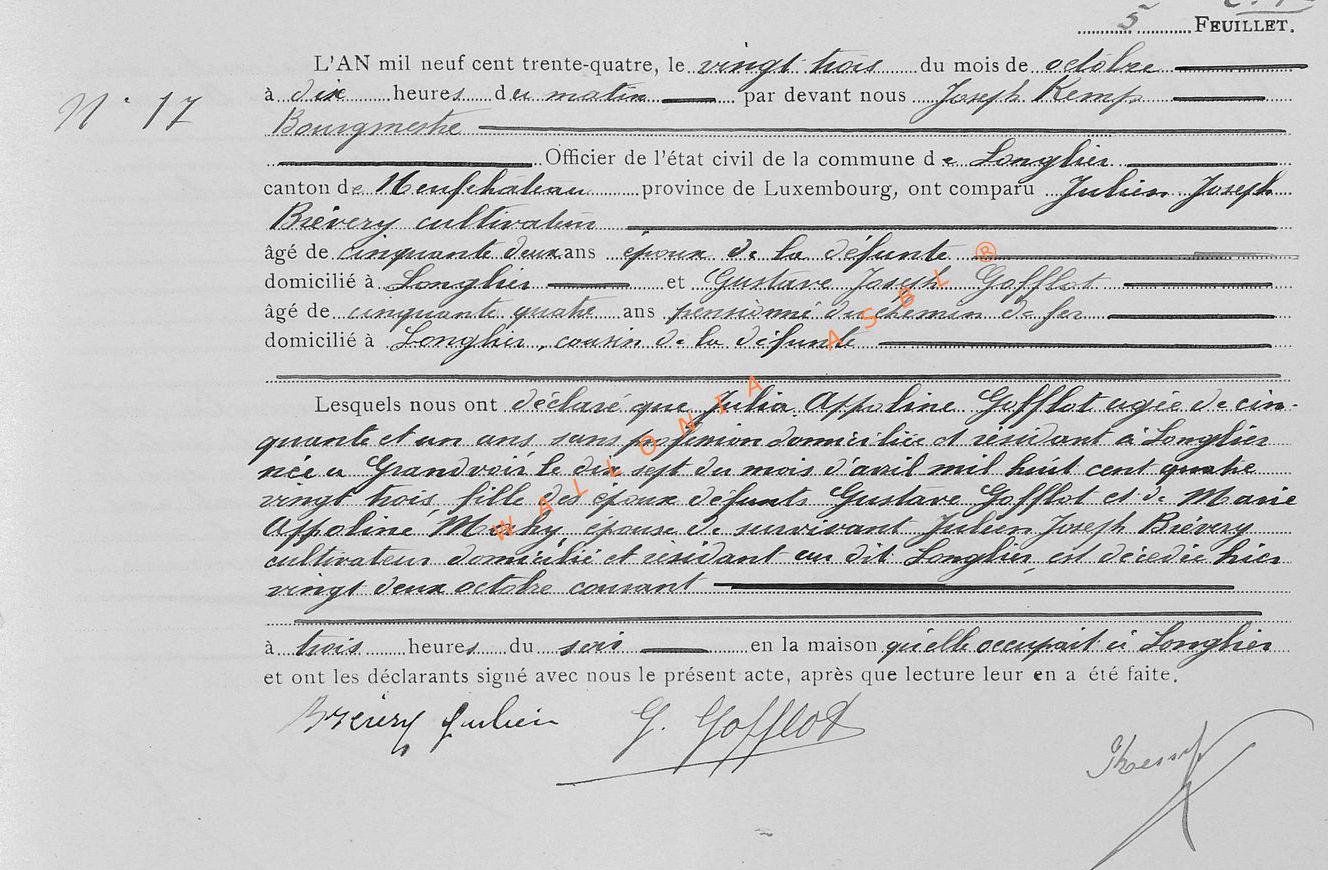 5 FEUILLET.
L'AN mil neuf cent trente-quatre, le vingt trois du mois de octobre
N° 17
à dix heures du matin par devant nous Joseph Kemp
Bourgmestre
Officier de l'état civil de la commune de Longlier
canton de Neufchâteau province de Luxembourg, ont comparu Julien Joseph
Brévery cultivateur
âgé de cinquante deux ans époux de la défunte
domicilié à Longlier et Gustave Joseph Gofflot
âgé de cinquante quatre ans pensionné du chemin de fer
domicilié à Longlier, cousin de la défunte
Lesquels nous ont déclaré que Julia Appoline Gofflot agée de cin-
quante et un ans sans profession domiciliée et résidant à Longlier
née a Grandvoir le dix sept du mois d'avril mil huit cent quatre
vingt trois fille des époux défunts Gustave Gofflot et de Marie
Appoline épouse de survivant Julien Joseph Brévery
cultivateur domicilié et résidant au dit Longlier est décédée hier
vingt deux octobre courant
à trois heures du soir en la maison qu'elle occupait à Longlier
et ont les déclarants signé avec nous le présent acte, après que lecture leur en a été faite.
Brévery Julien G. Gofflot
JKemp
WALLONIA ASBL ®